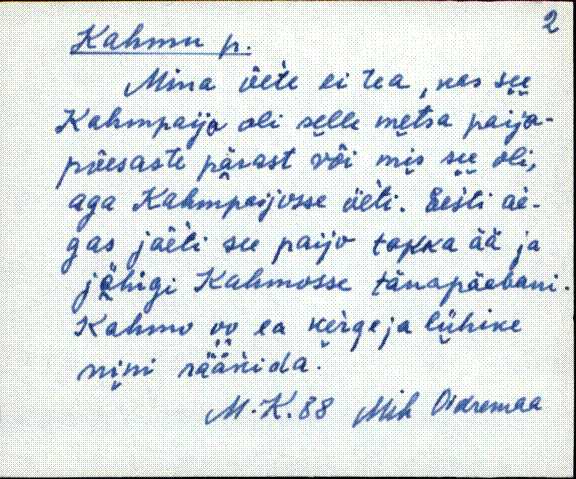 2
Kahmu p.
Mina õete ei tea, kas see
Kahmpaijo oli selle metsa paijo-
põesaste pärast või mis see oli,
aga Kahmpaijosse öeti. Eesti aè-
gas jäeti see paijo takka ää ja
jähigi Kahmosse tänapäebani.
Kahmo oo ea kèrge ja lühike
nini rääkida.
M.K. 88 Mih Oidremaa